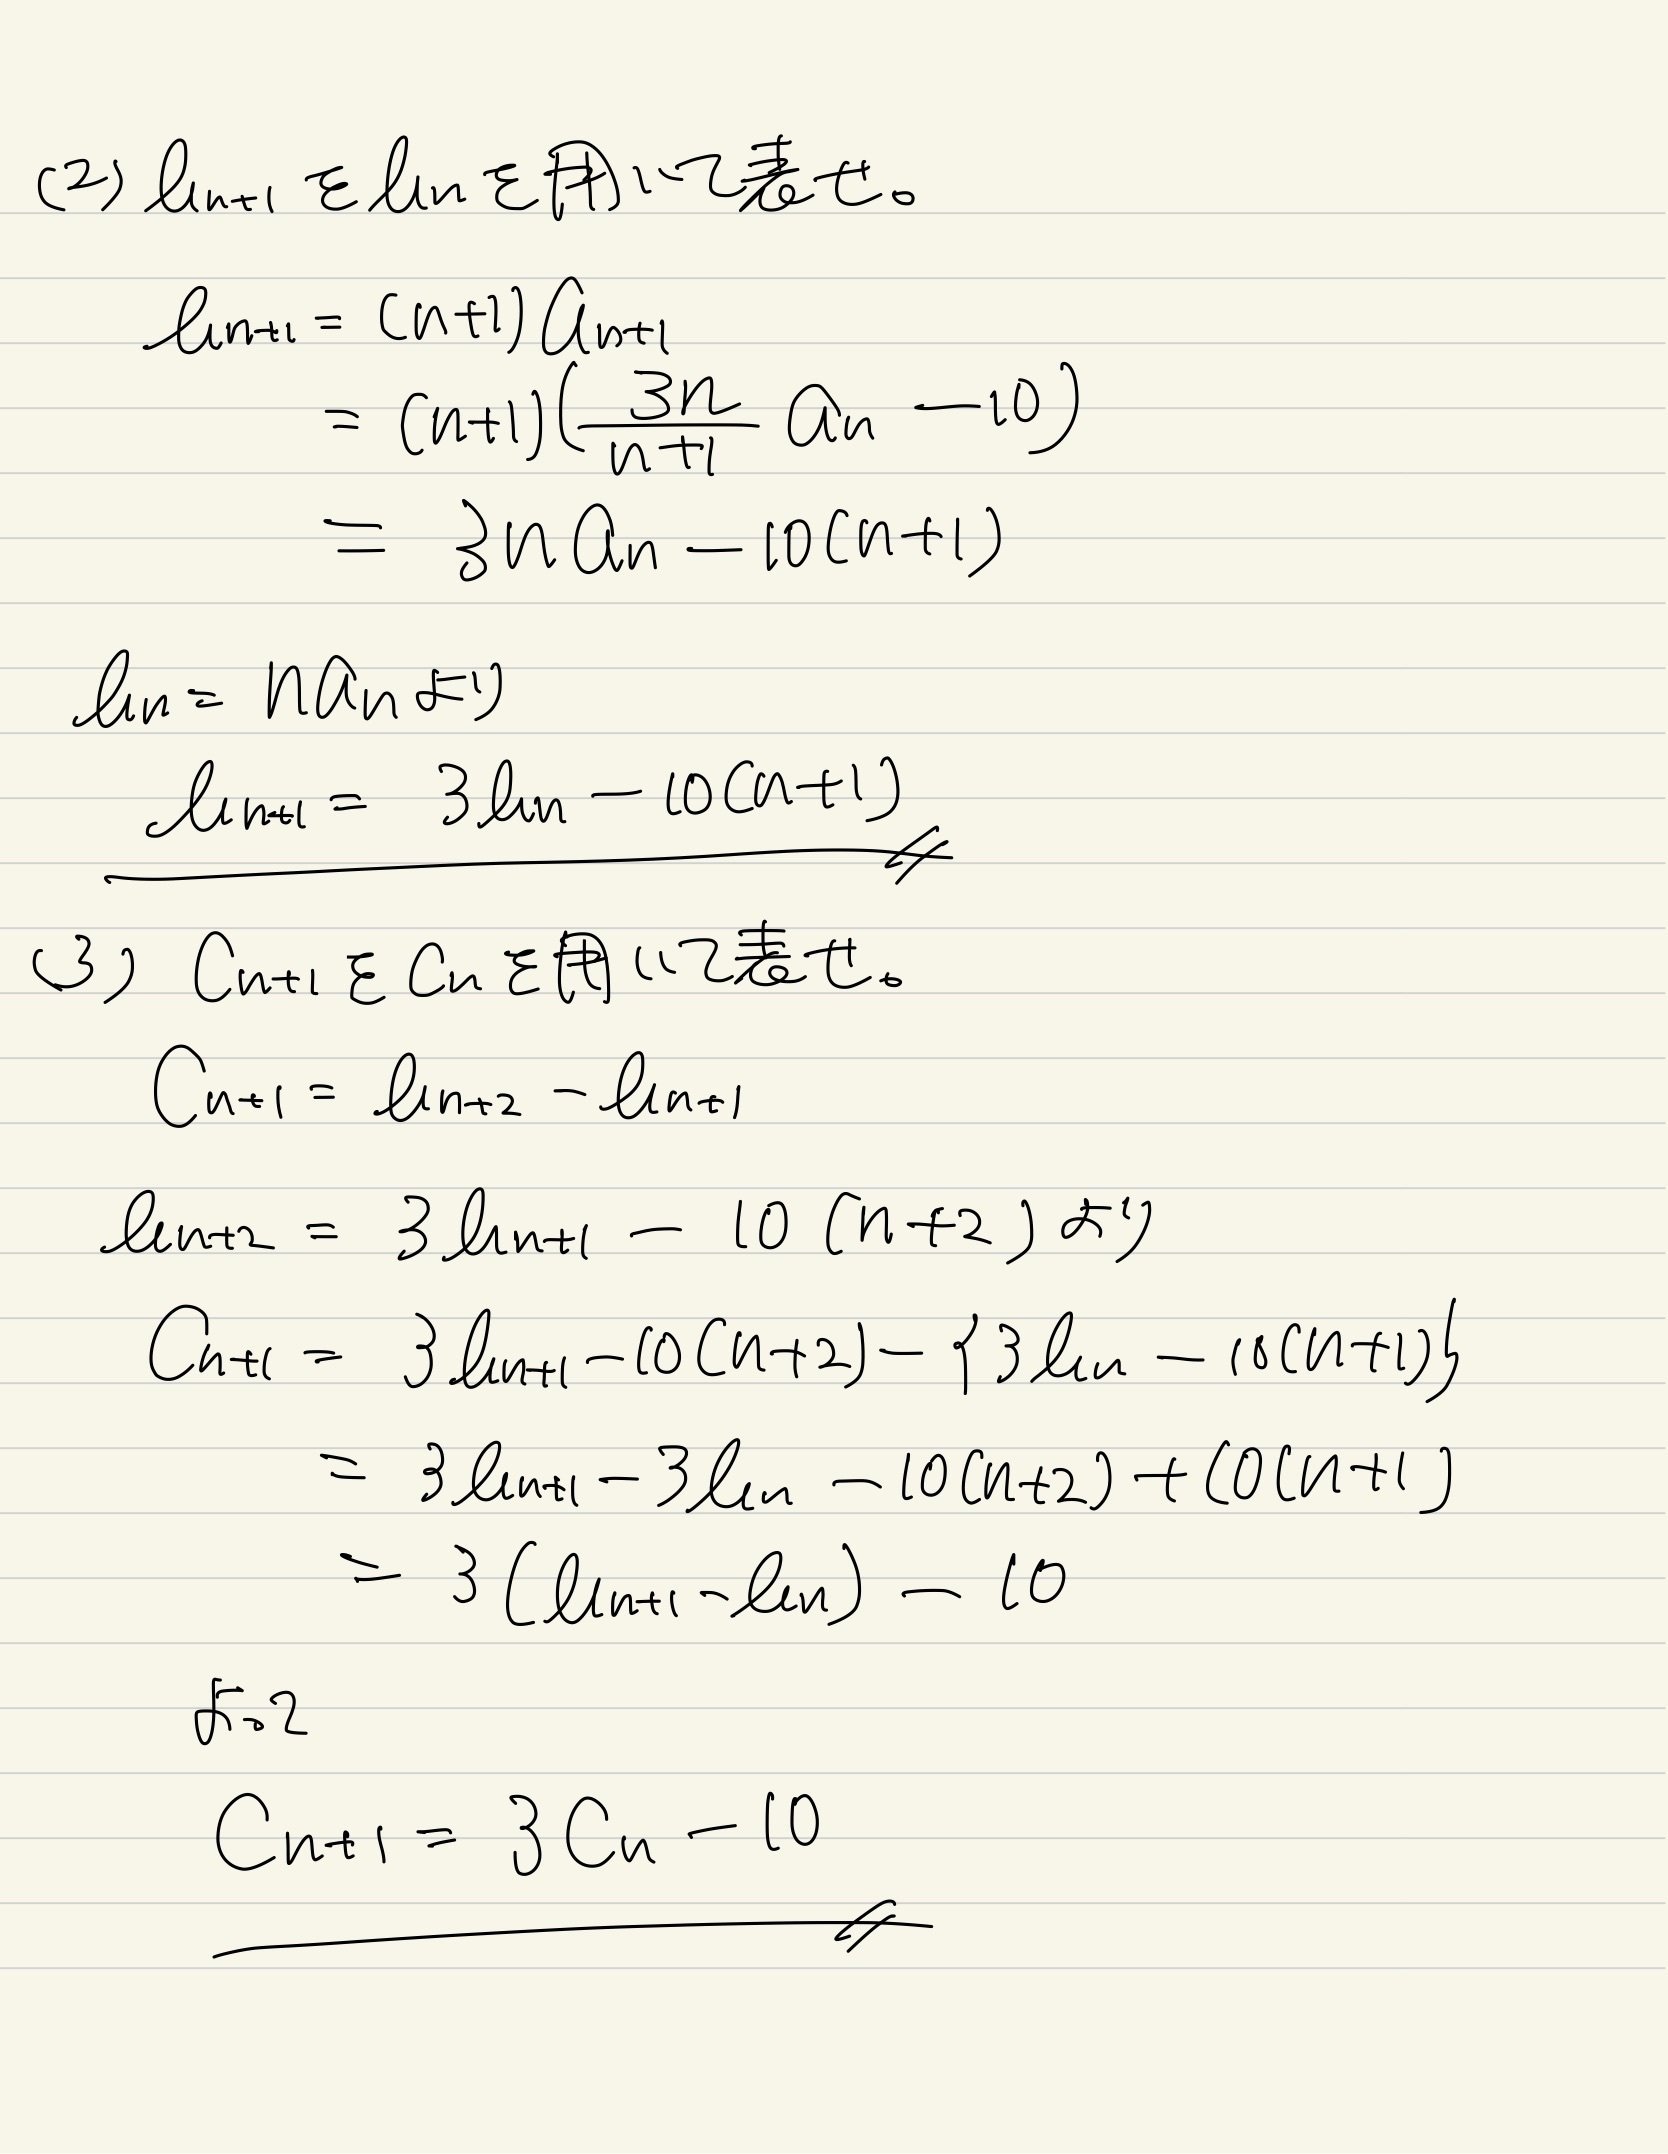 (2) b_{n+1} を b_n を用いて表せ。
b_{n+1} = (n+1) a_{n+1}
= (n+1)(\frac{3n}{n+1} a_n - 10)
= 3n a_n - 10(n+1)
b_n = n a_n より
b_{n+1} = 3b_n - 10(n+1)
(3) C_{n+1} を C_n を用いて表せ。
C_{n+1} = b_{n+2} - b_{n+1}
b_{n+2} = 3b_{n+1} - 10(n+2) より
C_{n+1} = 3b_{n+1} - 10(n+2) - {3b_n - 10(n+1)}
= 3b_{n+1} - 3b_n - 10(n+2) + 10(n+1)
= 3(b_{n+1} - b_n) - 10
よって
C_{n+1} = 3C_n - 10